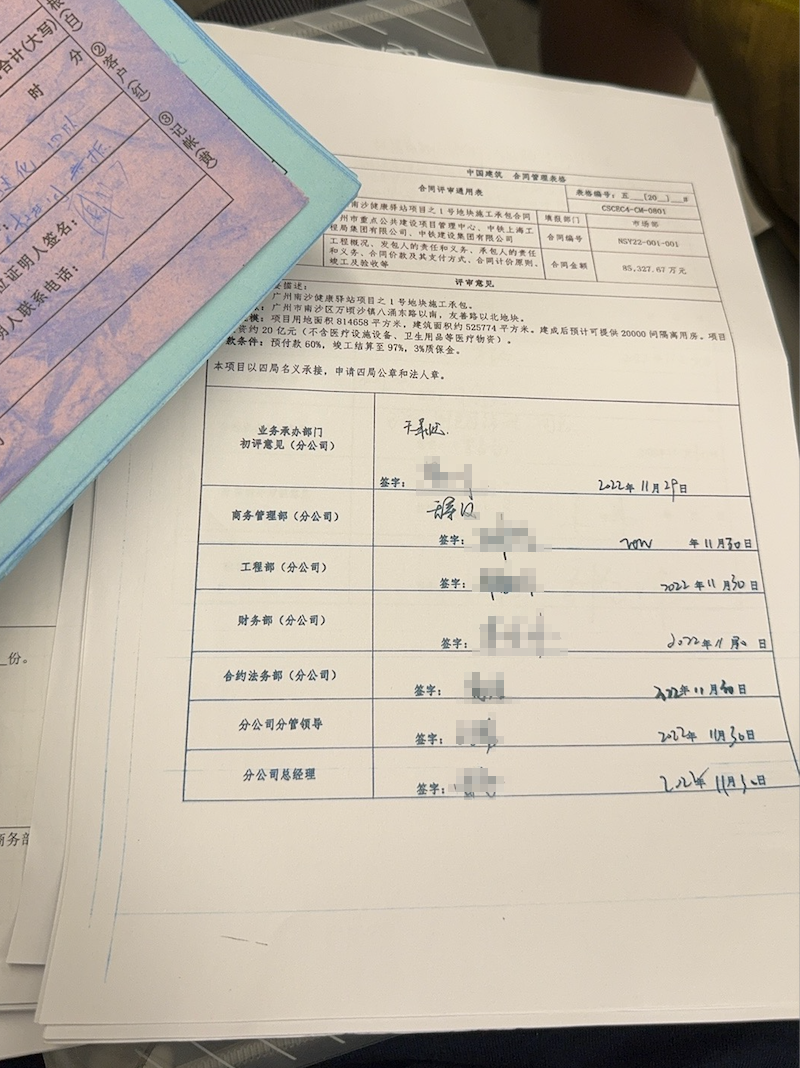 合计(大写)
②客户(红)
③记帐(黄)
时
分
证明人签名：
人联系电话：
份。
中国建筑 合同管理表格
合同评审通用表
表格编号：五___[20__]___#
CSCEC4-CM-0801
南沙健康驿站项目之1号地块施工承包合同
填报部门
市场部
州市重点公共建设项目管理中心、中铁上海工程局集团有限公司、中铁建设集团有限公司
合同编号
NSY22-001-001
工程概况、发包人的责任和义务、承包人的责任和义务、合同价款及其支付方式、合同计价原则、竣工及验收等
合同金额
85,327.67 万元
评审意见
要描述：
广州南沙健康驿站项目之1号地块施工承包。
广州市南沙区万顷沙镇八涌东路以南，友善路以北地块。
模：项目用地面积814658平方米，建筑面积约525774平方米。建成后预计可提供20000间隔离用房。项目
资约20亿元（不含医疗设施设备、卫生用品等医疗物资）。
款条件：预付款60%，竣工结算至97%，3%质保金。
本项目以四局名义承接，申请四局公章和法人章。
业务承办部门
初评意见（分公司）
签字：
2022年11月29日
商务管理部（分公司）
签字：
年11月30日
工程部（分公司）
签字：
2022年11月30日
财务部（分公司）
签字：
2022年11月30日
合约法务部（分公司）
签字：
2022年11月30日
分公司分管领导
签字：
2022年11月30日
分公司总经理
签字：
2022年11月30日